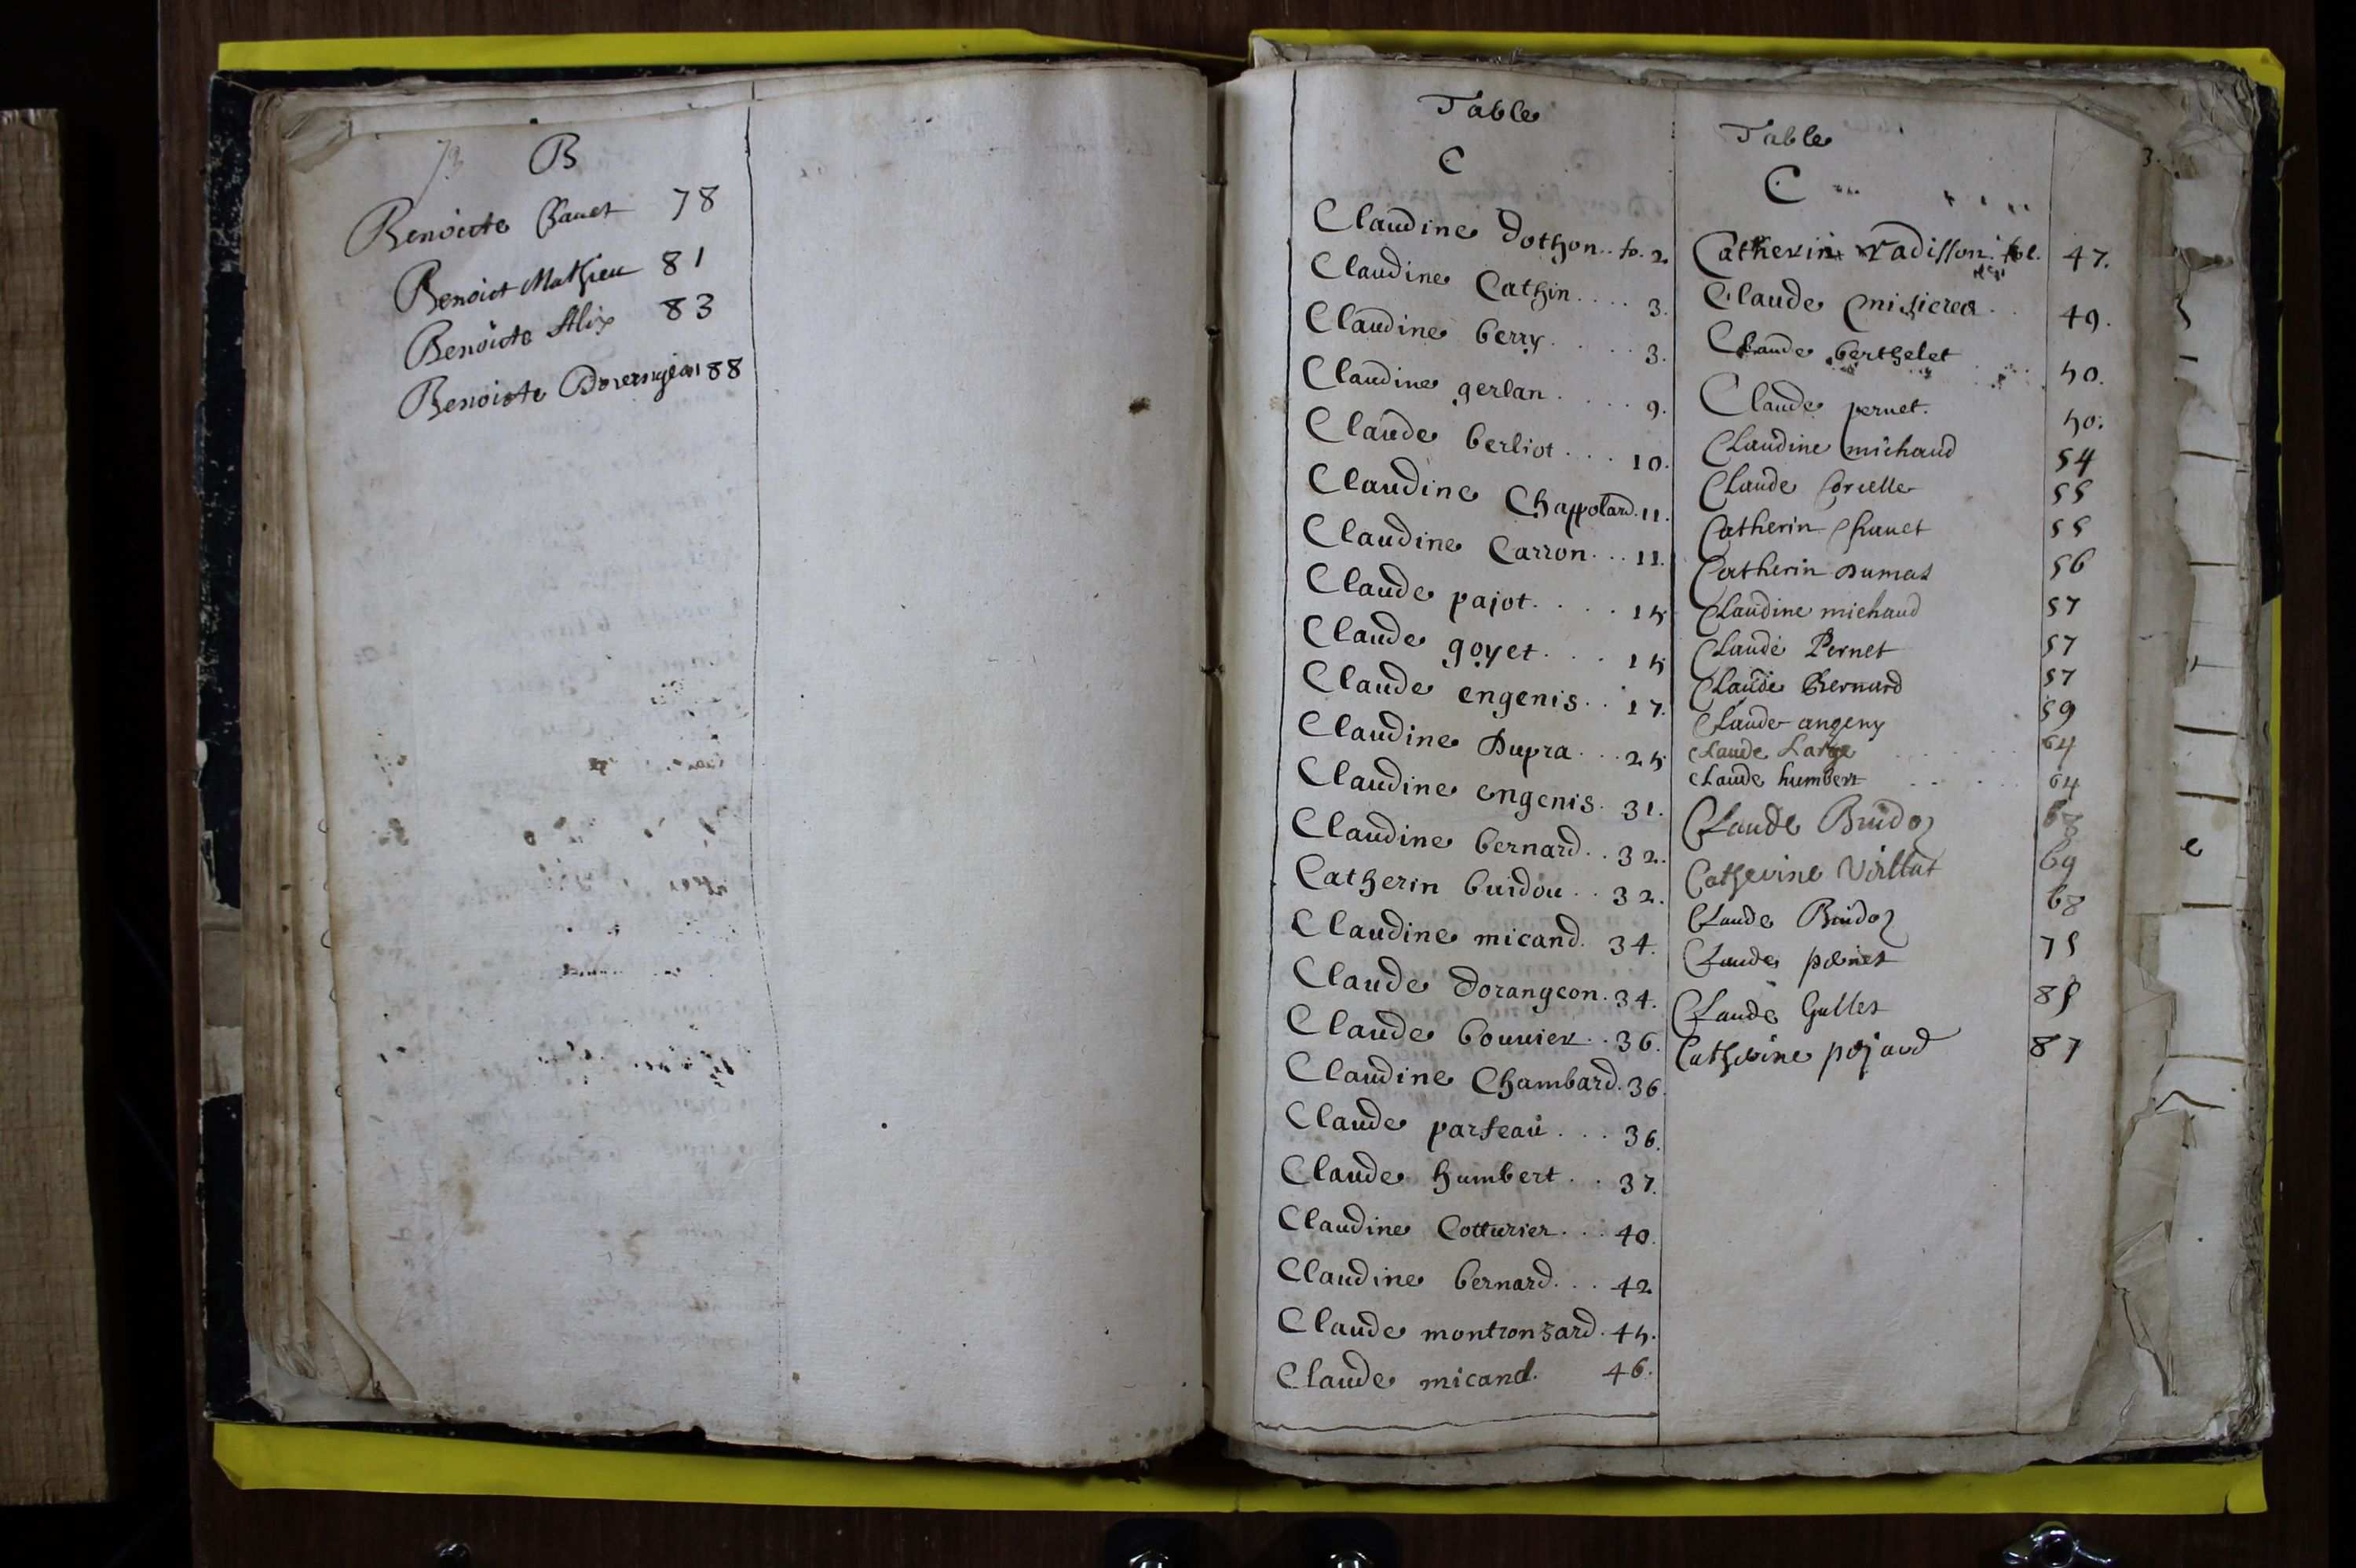 B
Benoicte Bauet 78
Benoict Mathieu 81
Benoicte Alix 83
Benoiste 88
Table
C
Claudine dothon .. fo. 2.
Claudine Cathin .... 3.
Claudine berry ..... 3.
Claudine gerlan ..... 9.
Claude berliot .... 10.
Claudine Chappolard . 11.
Claudine Carron ... 11.
Claude pajot ..... 15
Claude goyet .... 15
Claude engenis .. 17.
Claudine Dupra ... 25
Claudine engenis . 31.
Claudine bernard .. 32.
Catherin buidon .. 32.
Claudine micand . 34.
Claude dorangeon . 34.
Claude bouuier .. 36.
Claudine Chambard . 36.
Claude parseau ... 36.
Claude humbert .. 37.
Claudine Cotturier ... 40.
Claudine bernard ... 42
Claude montronzard . 45.
Claude micand. 46.
Table
C
3.
Catherin radisson . fol. 47.
Claude 49.
Claude berthelet 50.
Claude pernet. 50.
Claudine michaud 54
Claude Corcelle 55
Catherin Chanet 55
Catherin Dumas 56
Claudine michaud 57
Claude Pernet 57
Claude Bernard 57
Claude angeny 59
Claude Large 64
Claude humbert 64
Claude Buidon 68
Catherine Virllut 69
Claude Buidon 68
Claude pernet 75
Claude Gullet 85
Catherine pojard 87